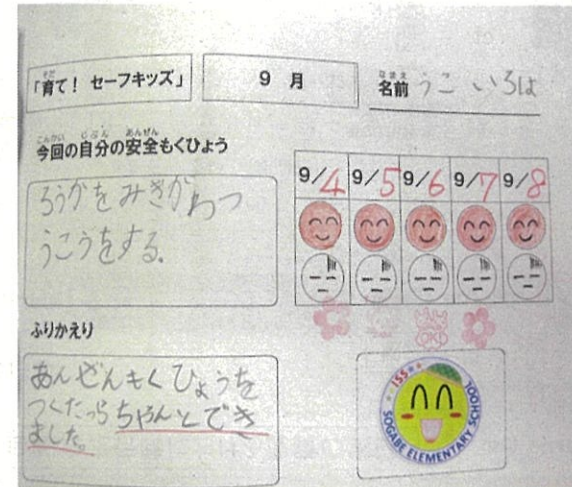 「育て！ セーフキッズ」
9 月
名前 うこ いろは
今回の自分の安全もくひょう
ろうかをみぎがわつ
うこうをする。
9/4 9/5 9/6 9/7 9/8
ふりかえり
あんぜんもくひょうを
つくたっらちゃんとでき
ました。
ISS
SOGABE ELEMENTARY SCHOOL